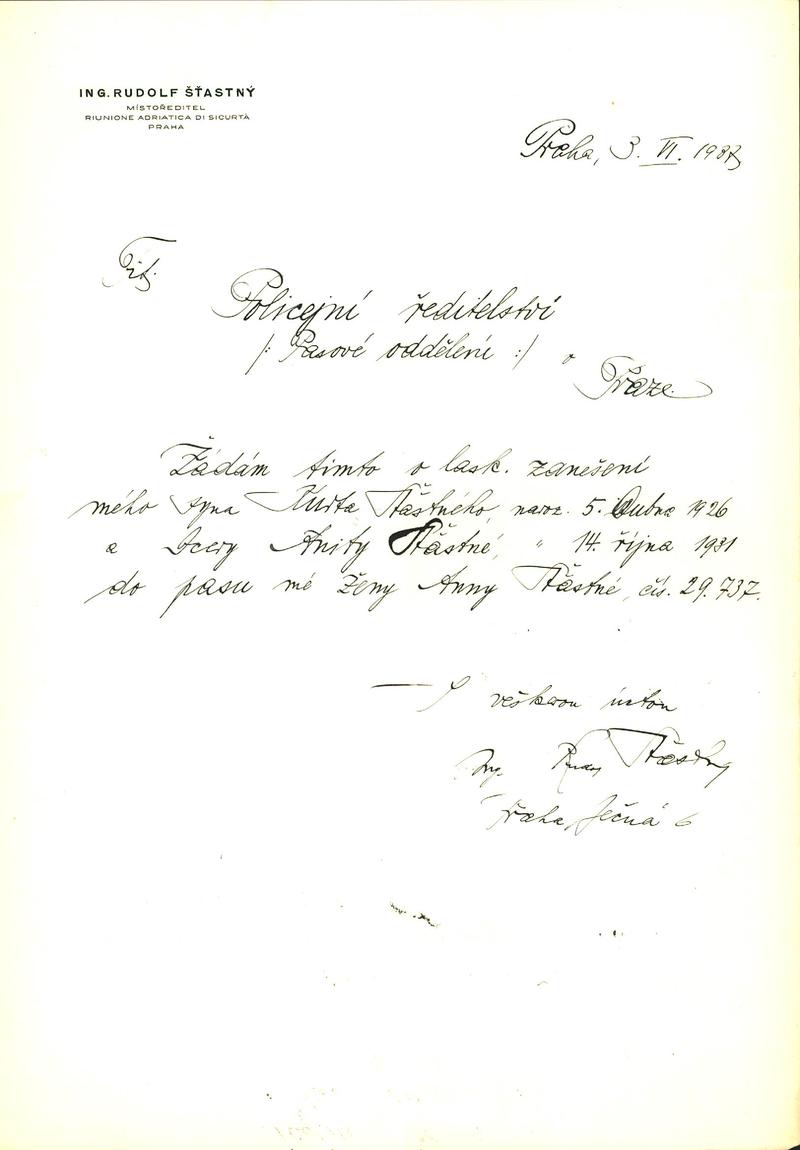 ING. RUDOLF ŠŤASTNÝ
MÍSTOŘEDITEL
RIUNIONE ADRIATICA DI SICURTÀ
PRAHA
Praha, 3. VI. 1937
Tit.
Policejní ředitelství
/: Pasové oddělení :/ v
Praze.
Žádám tímto o lask. zanešení
mého syna Kurta Šťastného, naroz. 5. dubna 1926
a dcery Anity Šťastné, " 14. října 1931
do pasu mé ženy Anny Šťastné, čís. 29.737.
S veškerou úctou
Ing. Rudolf Šťastný
Praha, Ječná 6